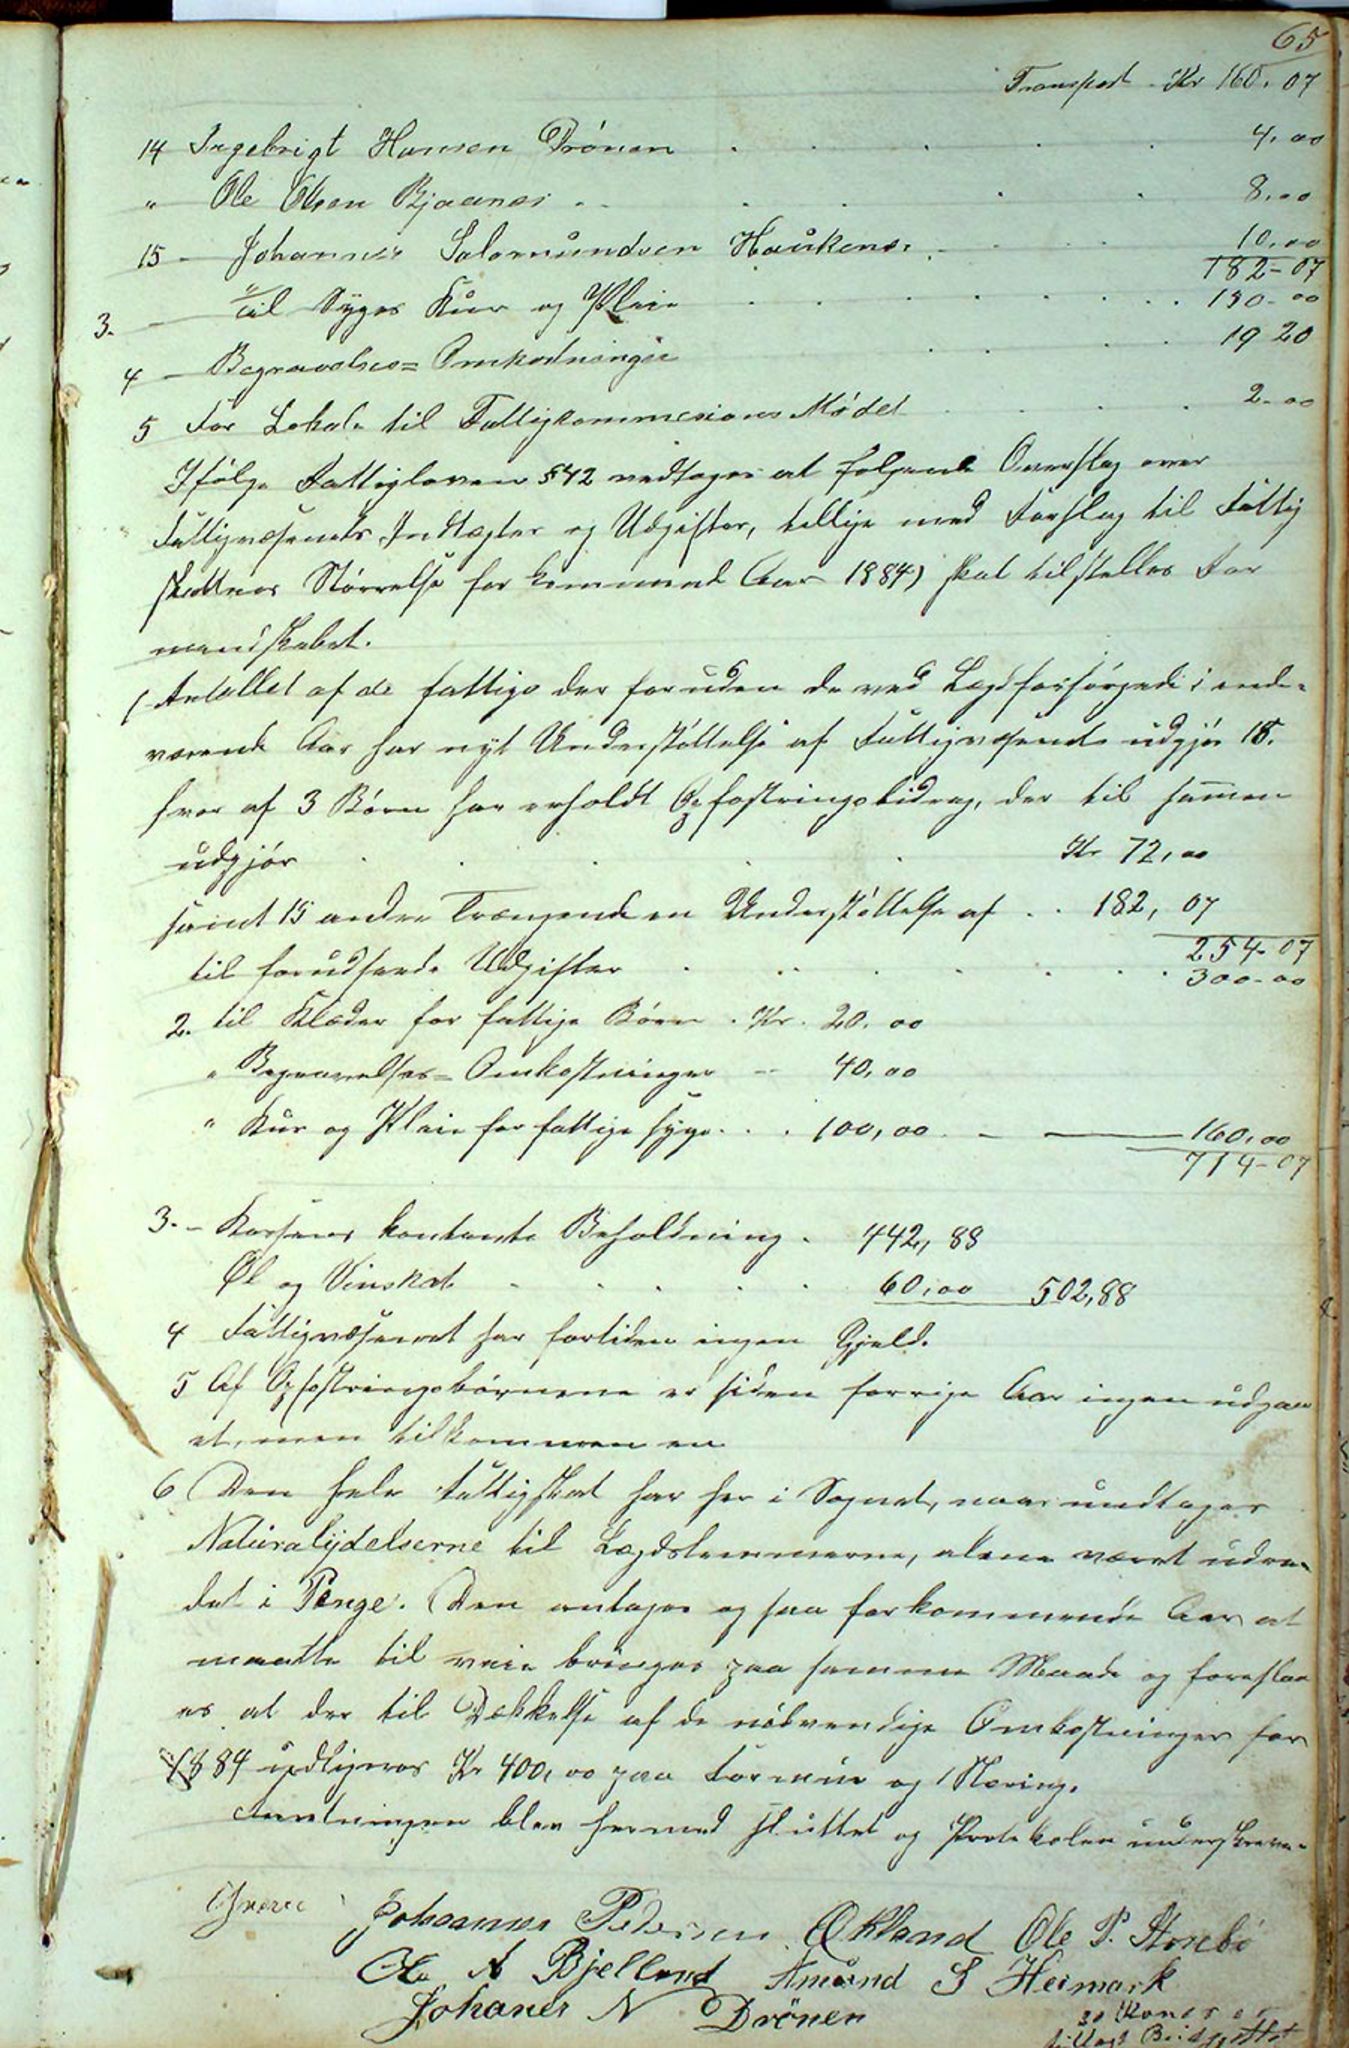 65
Transport Kr 160.07
14 Ingebrigt Hansen Drönen 4.00
" Ole Olsen Bjaanes 8.00
15 - Johannes Salomundsen Haukenes 10.00
182-07
3. - Til Syges Kur og Pleie 150-00
4 - Begravelses= Omkostninger 19 20
5 For Lokale til Fattigkommissions Mödet 2-00
Ifölge Fattigloven §42 vedtoges at fölgende Overslag over
Fattigvæsenets Indtægter og Udgifter, tillige med Forslag til Fattig
skattens Störrelse for kommende Aar 1884) skal tilstelles For
mandskabet.
1 Antallet af de fattige der foruden de ved Lægd forsörgede i inde-
værende Aar har nydt Understöttelse af Fattigvæsenet udgjör 18.
hvor af 3 Börn har erholdt Opfostringsbidrag, der til sam̄en
udgjör Kr 72,00
samt 15 andre Trængende en Understöttelse af .. 182, 07
254-07
til forudseede Udgifter 300-00
2. til Klæder for fattige Börn . Kr. 20.00
" Begravelses= Omkostninger - 40,00
" Kur og Pleie for fattige syge . . . 100,00 - 160,00
714-07
3. - Kassens kontante Beholdning . 442,88
Øl og Vinskat 60,00 502,88
4 Fattigvæsenet har fortiden ingen Gjeld.
5 Af Opfostringsbörnene er siden forrige Aar ingen udgaa
et, men tilkommen en
6 Den hele Fattigskat har her i Sognet, naar undtages
Naturalydelserne til Lægdslemmerne, alene været udre-
det i Penge. Den antages og saa for kommende Aar at
maatte til veie bringes paa samme Maade og foreslaa
es at der til Dækkelse af de nödvendige Omkostninger for
1884 udlignes Kr 400,00 paa Formue og Næring.
Forretningen blev hermed sluttet og Protokolen underskreven
Johannes Pedersen Økland Ole P. Storebö
Ole A Bjelland Amund S Heimark
Johanes N Drönen
30 Kroner
tillagt